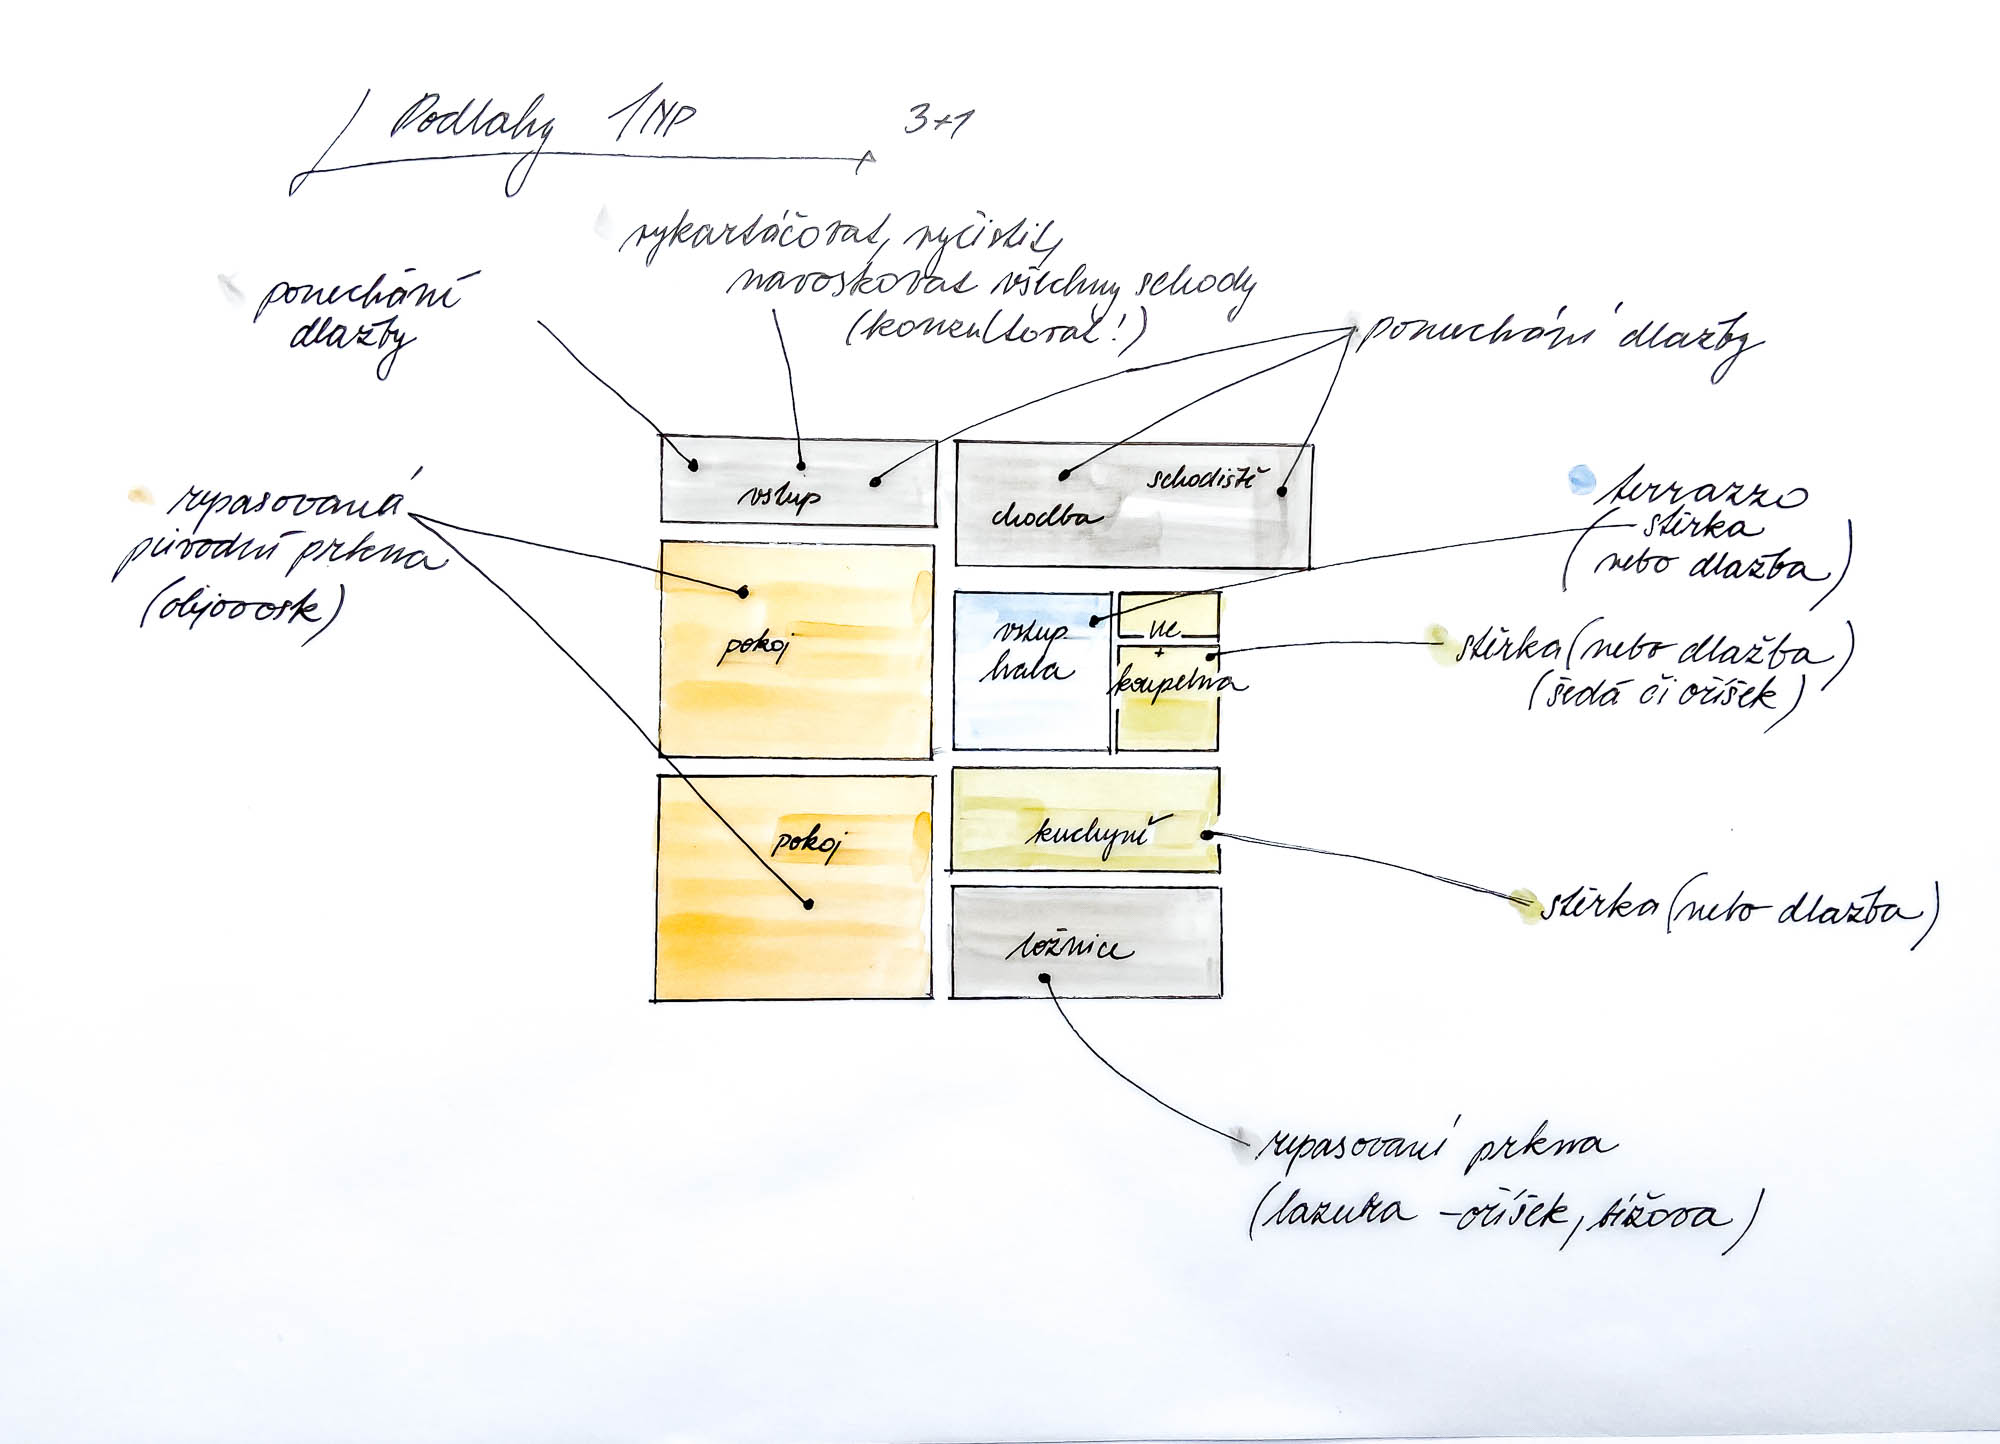 Podlahy 1NP 3+1
vykartáčovat, vyčistit,
navoskovat všechny schody
(konzultovat!)
ponechání
dlažby
ponechání dlažby
vstup
schodiště
chodba
repasovaná
původní prkna
(olejovosk)
terrazzo
(stěrka
nebo dlažba)
pokoj
vstup
hala
wc
+
koupelna
stěrka (nebo dlažba)
(šedá či oříšek)
pokoj
kuchyně
stěrka (nebo dlažba)
ložnice
repasovaní prkna
(lazura - oříšek, béžova)